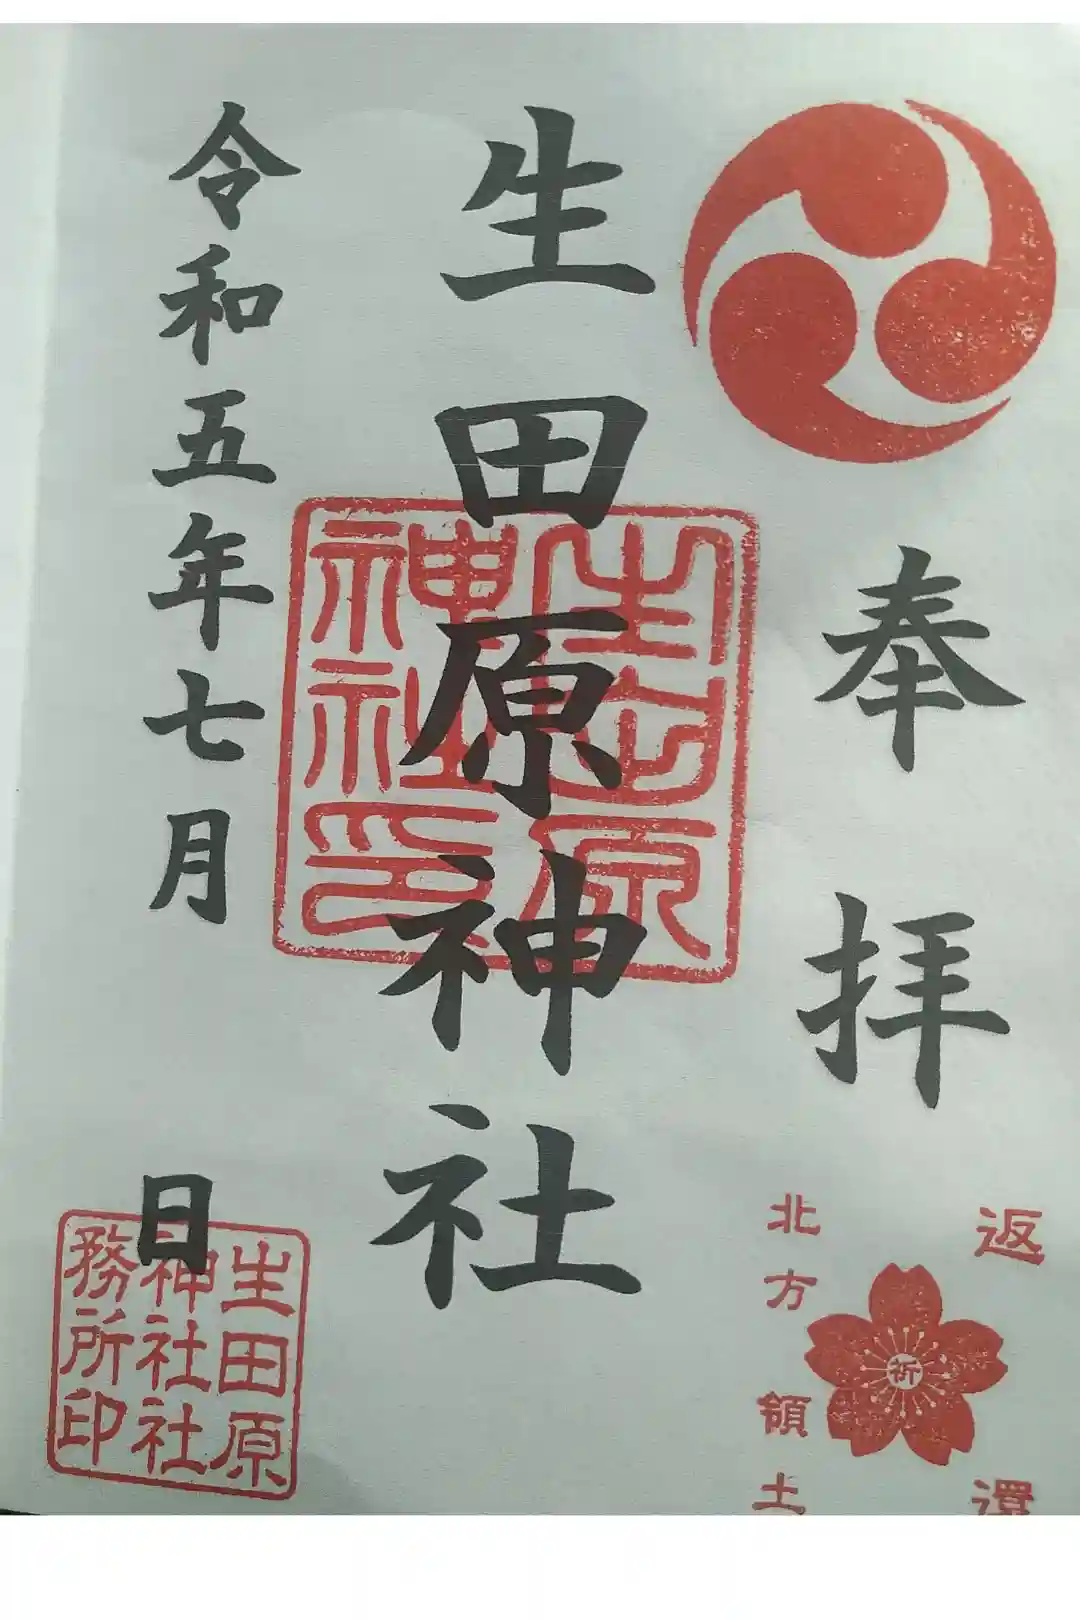 奉拝
生田原神社
生田原
神社印
令和五年七月 日
生田原
神社社
務所印
返還
祈
北方領土